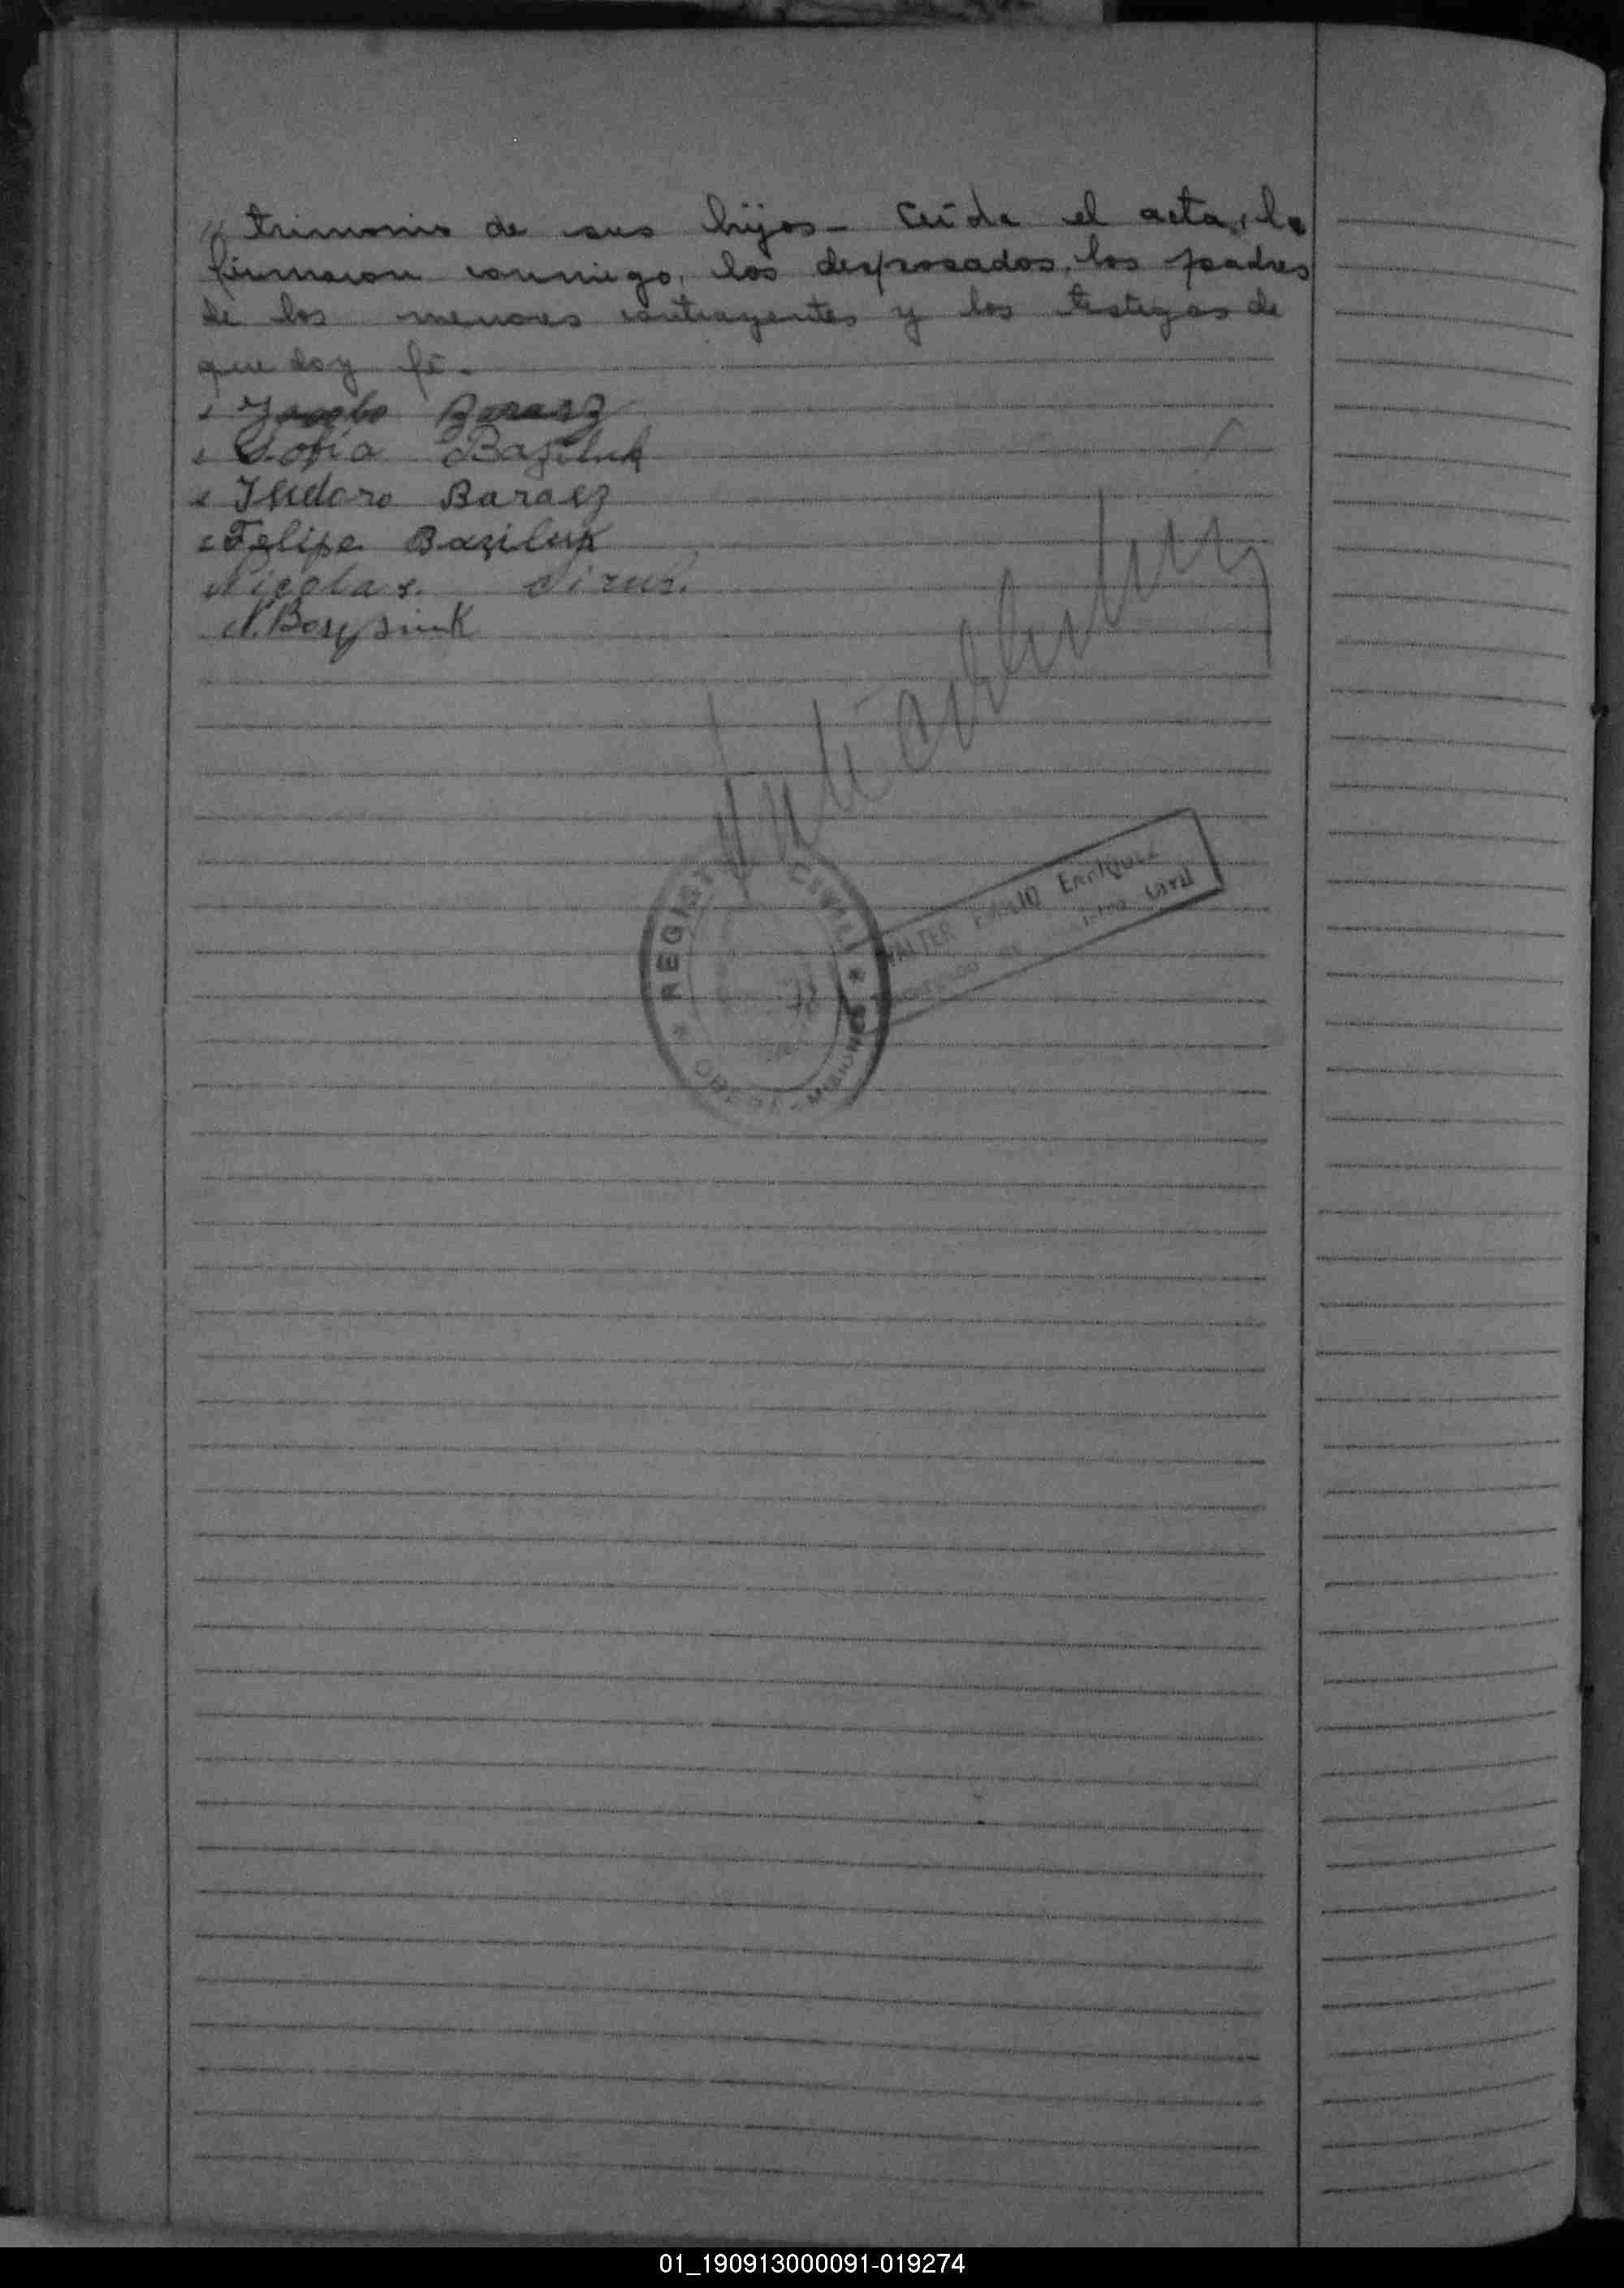 " trimonio de sus hijos - Leída el acta, la
firmaron conmigo, los desposados, los padres
de los menores contrayentes y los testigos de
que doy fé.
Jacobo Baraez
Sofia Baziluk
Isidoro Baraez
Felipe Baziluk
Nicolas
REGISTRO CIVIL
OBERA - MISIONES
WALTER Enriquez
Civil
01_190913000091-019274